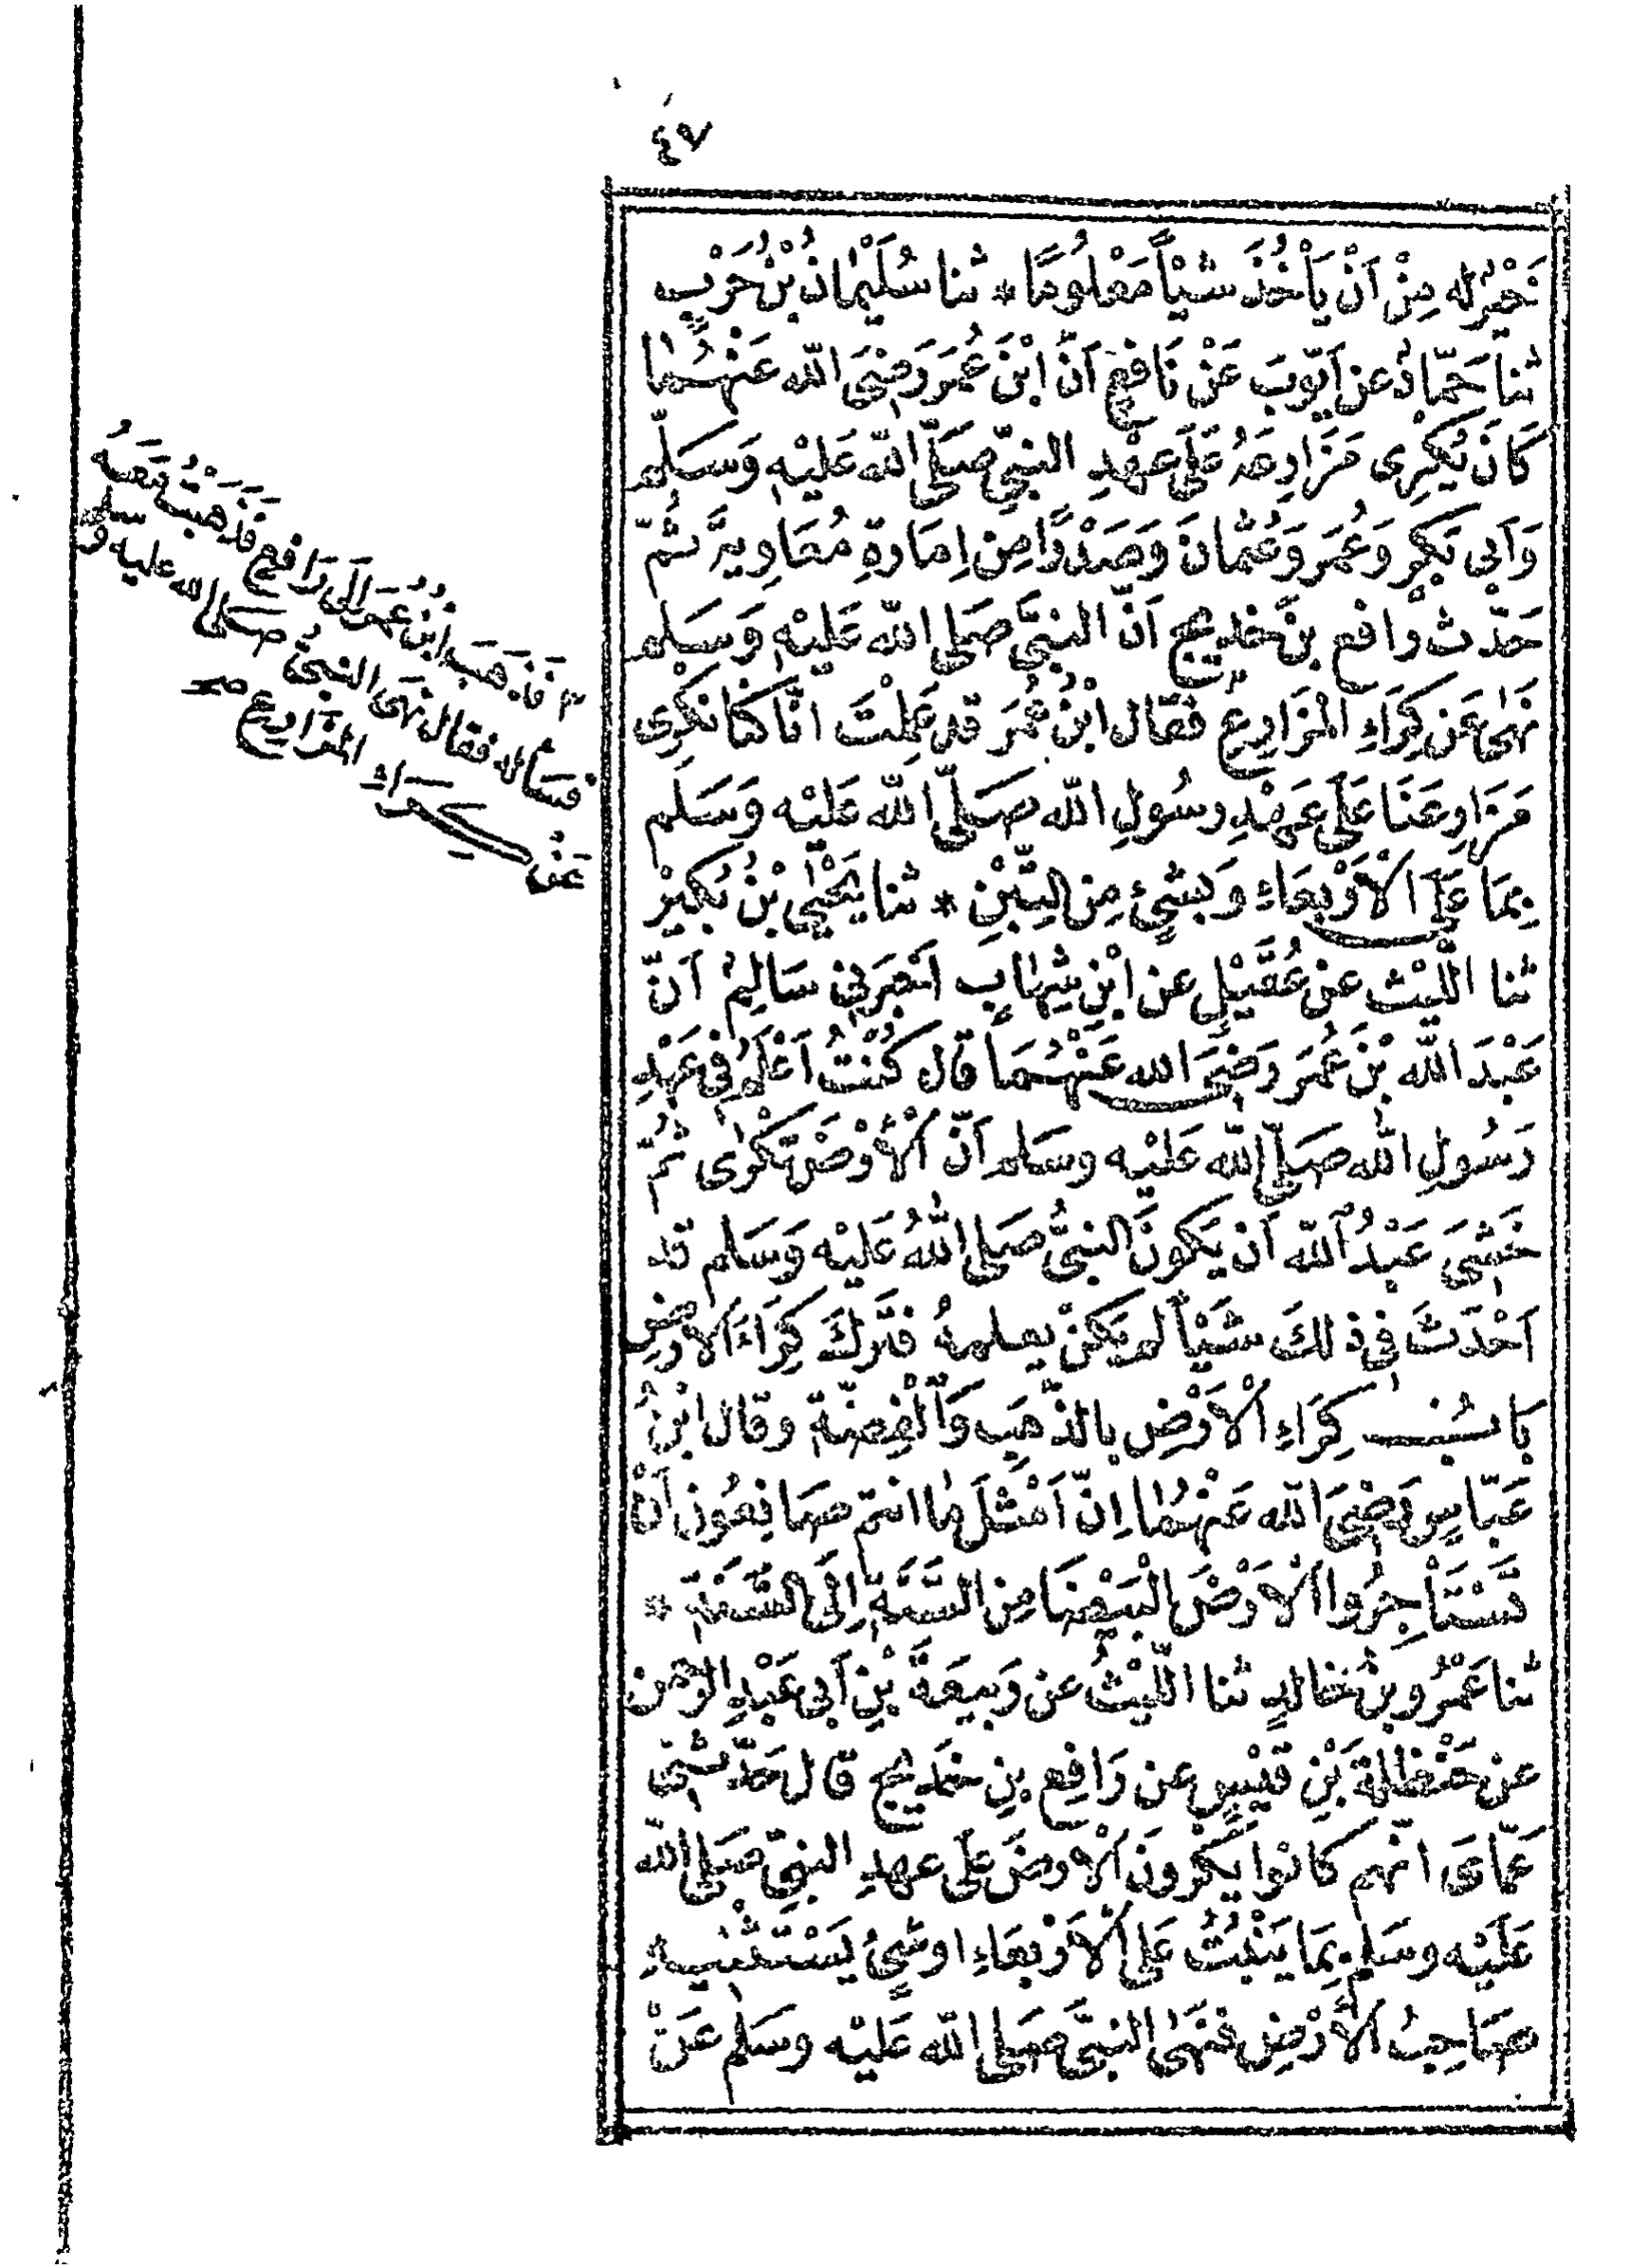 ٤٧
نَحْيرٌ له مِنْ اَنْ يَأْخُذَ شَيْأً مَعْلُومًا * ثنا سُلَيْمَانُ بْنُ حَرْبٍ
ثنا حَمّادٌ عن اَيّوبَ عَنْ نَافِعٍ اَنَّ ابْنَ عُمَرَ رَضِىَ الله عَنْهُمَا
كَانَ يُكْرِى مَزَارِعَهُ عَلَى عَهْدِ النبىِّ صَلَّى اللّه عَلَيْهِ وَسَلّم
وَاَبِى بَكْرٍ وَعُمَرَ وَعُثْمانَ وَصَدْرًا مِن اِمَارَةِ مُعَاوِيَةَ ثُمّ
حَدّث رافع بنَ خديج اَنّ النبىَّ صَلى اللّه عَلَيْهِ وَسَلم
نَهٰى عَن كِرَاءِ المْزَارِعِ فقال ابْنُ عُمَرَ قد عَلِمْتَ انّا كنا نُكْرِى
مَزَارِعَنَا عَلَى عَهْدِ رسُولِ اللّه صَلّى اللّه عَلَيْه وَسَلم
بِمَا عَلَى الْاَرْبِعَاءِ وَبشَىْءٍ مِن التِّبْنِ * ثنا يَحْيٰى بْنُ بُكَيْرٍ
ثنا اللّيْث عن عُقَيْلٍ عن ابْنِ شِهَابٍ اَخبَرَنِى سَالِمٌ اَنّ
عَبْدَ اللّه بْنَ عُمَرَ رَضِىَ الله عَنْهُمَا قال كُنْتُ اَعْلَمُ فِى عَهْدِ
رَسُولِ اللّه صَلّى اللّه عَلَيْه وسَلم اَنّ اْلاَرْضَ تُكْرٰى ثُمّ
خَشِىَ عَبْدُ اللّه اَن يَكونَ النبىُّ صَلى اللّهُ عَلَيْه وَسَلم قد
اَحْدَثَ فى ذلكَ شَيْأً لم يَكنْ يعلمهُ فتَرَكَ كِرَاءَ الارْضِ
بَابُ كِرَاءِ اْلاَرْضِ بالذّهَبِ وَالْفِضّة وقال ابْنُ
عَبّاسٍ رَضِىَ اللّه عَنْهُمَا اِنّ اَمْثَلَ مَا انتم صَانِعُونَ اَنْ
تَسْتَأْجِرُوا اْلاَرْضَ الْبَيْضَا مِن السَّنَةِ اِلَى السَّنَةِ *
ثنا عَمْرُو بنُ خَالِدٍ ثنا اللّيْثُ عن رَبِيعَةَ بْنِ اَبى عَبْدِ الرحمن
عن حَنْظَلَةَ بْنِ قَيْسٍ عن رَافِعِ بنِ خَدِيجٍ قال حَدّثنِى
عَمَّاىَ انّهم كانوا يُكْرُونَ اْلاَرضَ عَلَى عهدِ النبىِّ صَلى اللّه
عَلَيْه وسَلم بِمَا يَنْبُتُ عَلى اْلاَرْبعَاءِ او شَىْءٍ يَسْتَثْنِيهِ
صَاحِبُ اْلاَرْضِ فنَهٰى النبىُّ صَلى اللّه عَلَيْه وسَلم عَنْ
٣ فَذَهَبَ ابْنُ عُمَرَ اِلَى رَافِعٍ فَذَهَبْتُ مَعَهُ
فسَأله فقال نهَى النبىُّ صَلى الله عليه وسلم
عَنْ كِرَاءِ المزَارِع صح